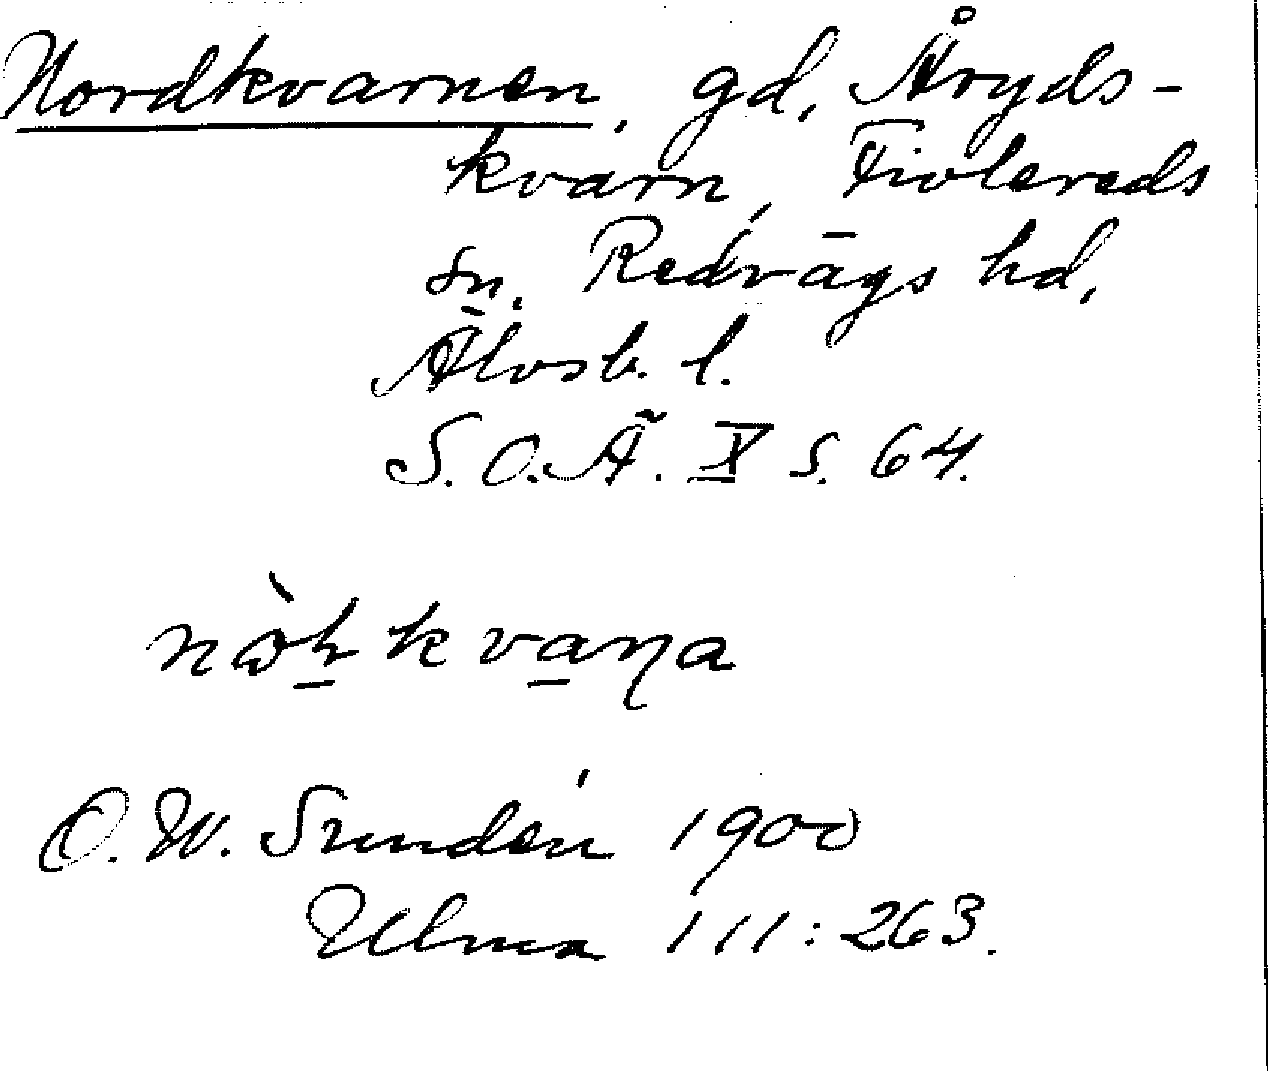 Nordkvarnen, gd, Åryds-
kvarn, Fivlereds
sn. Redvägs hd,
Älvsb. l.
S.O.Ä. X s. 64.
kvaɳa
O. W. Sundén 1900
Ulma 111:263.